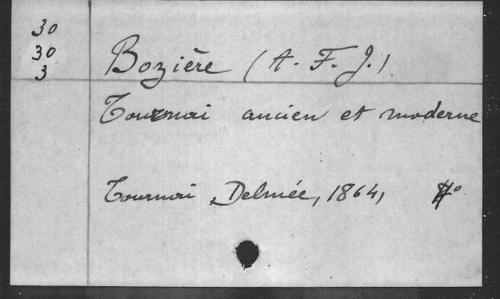 30
30
3
Bozière (A. F. J.)
Tournai ancien et moderne
Tournai, Delmée, 1864,